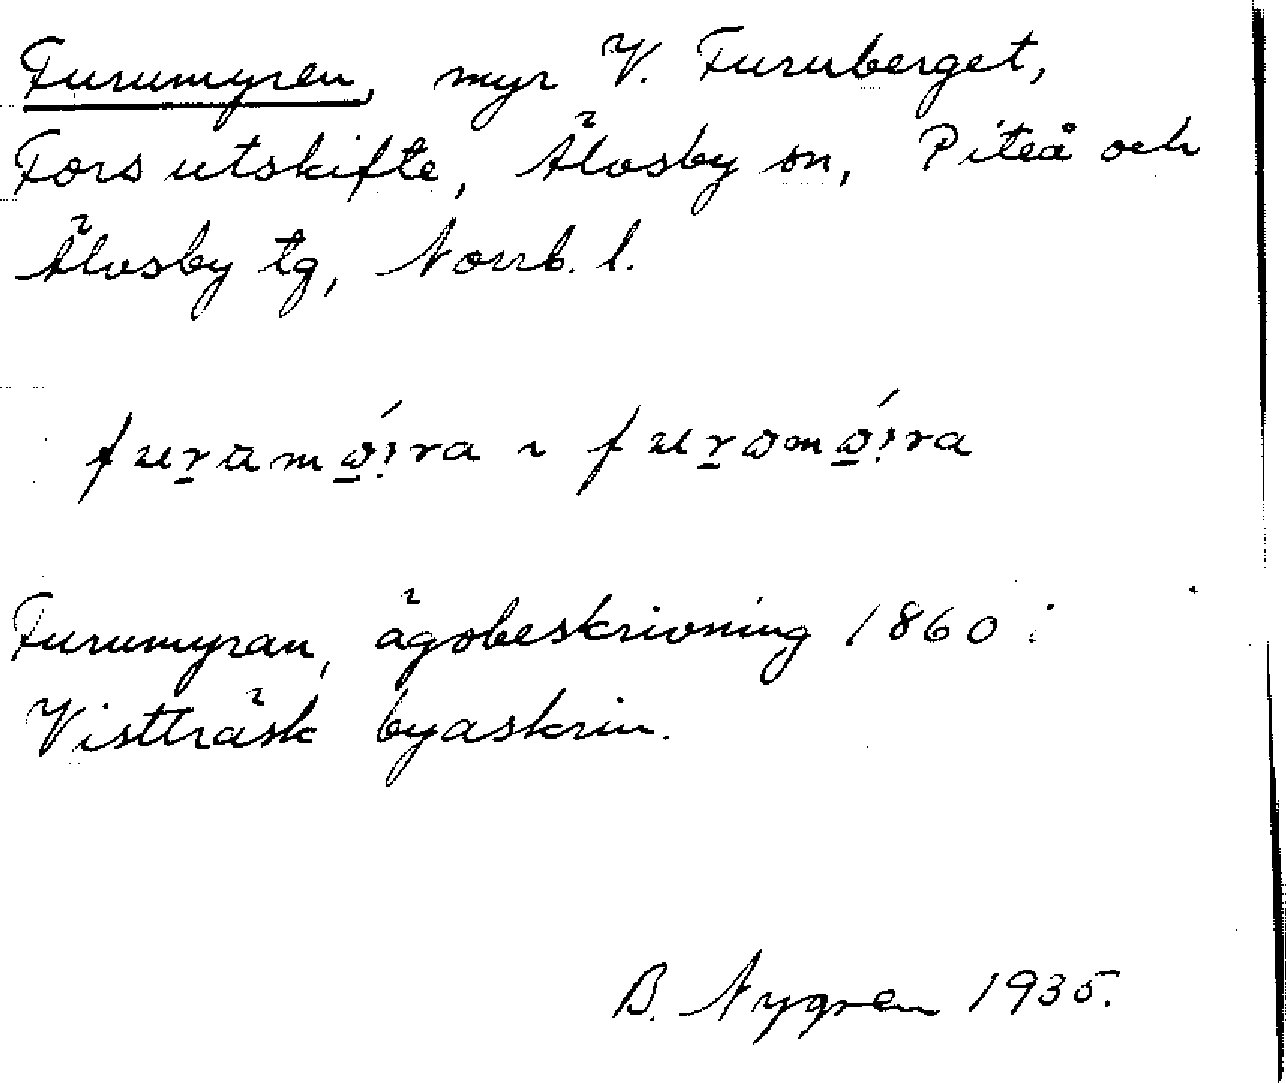 Furumyren, myr V. Furuberget,
Fors utskifte, Älvsby sn, Piteå och
Älvsby tg, Norrb. l.
furamǿ!ra ~ furomǿ!ra
Furumyran, ägobeskrivning 1860 i
Vistträsk byaskrin.
B. Nygren 1935.